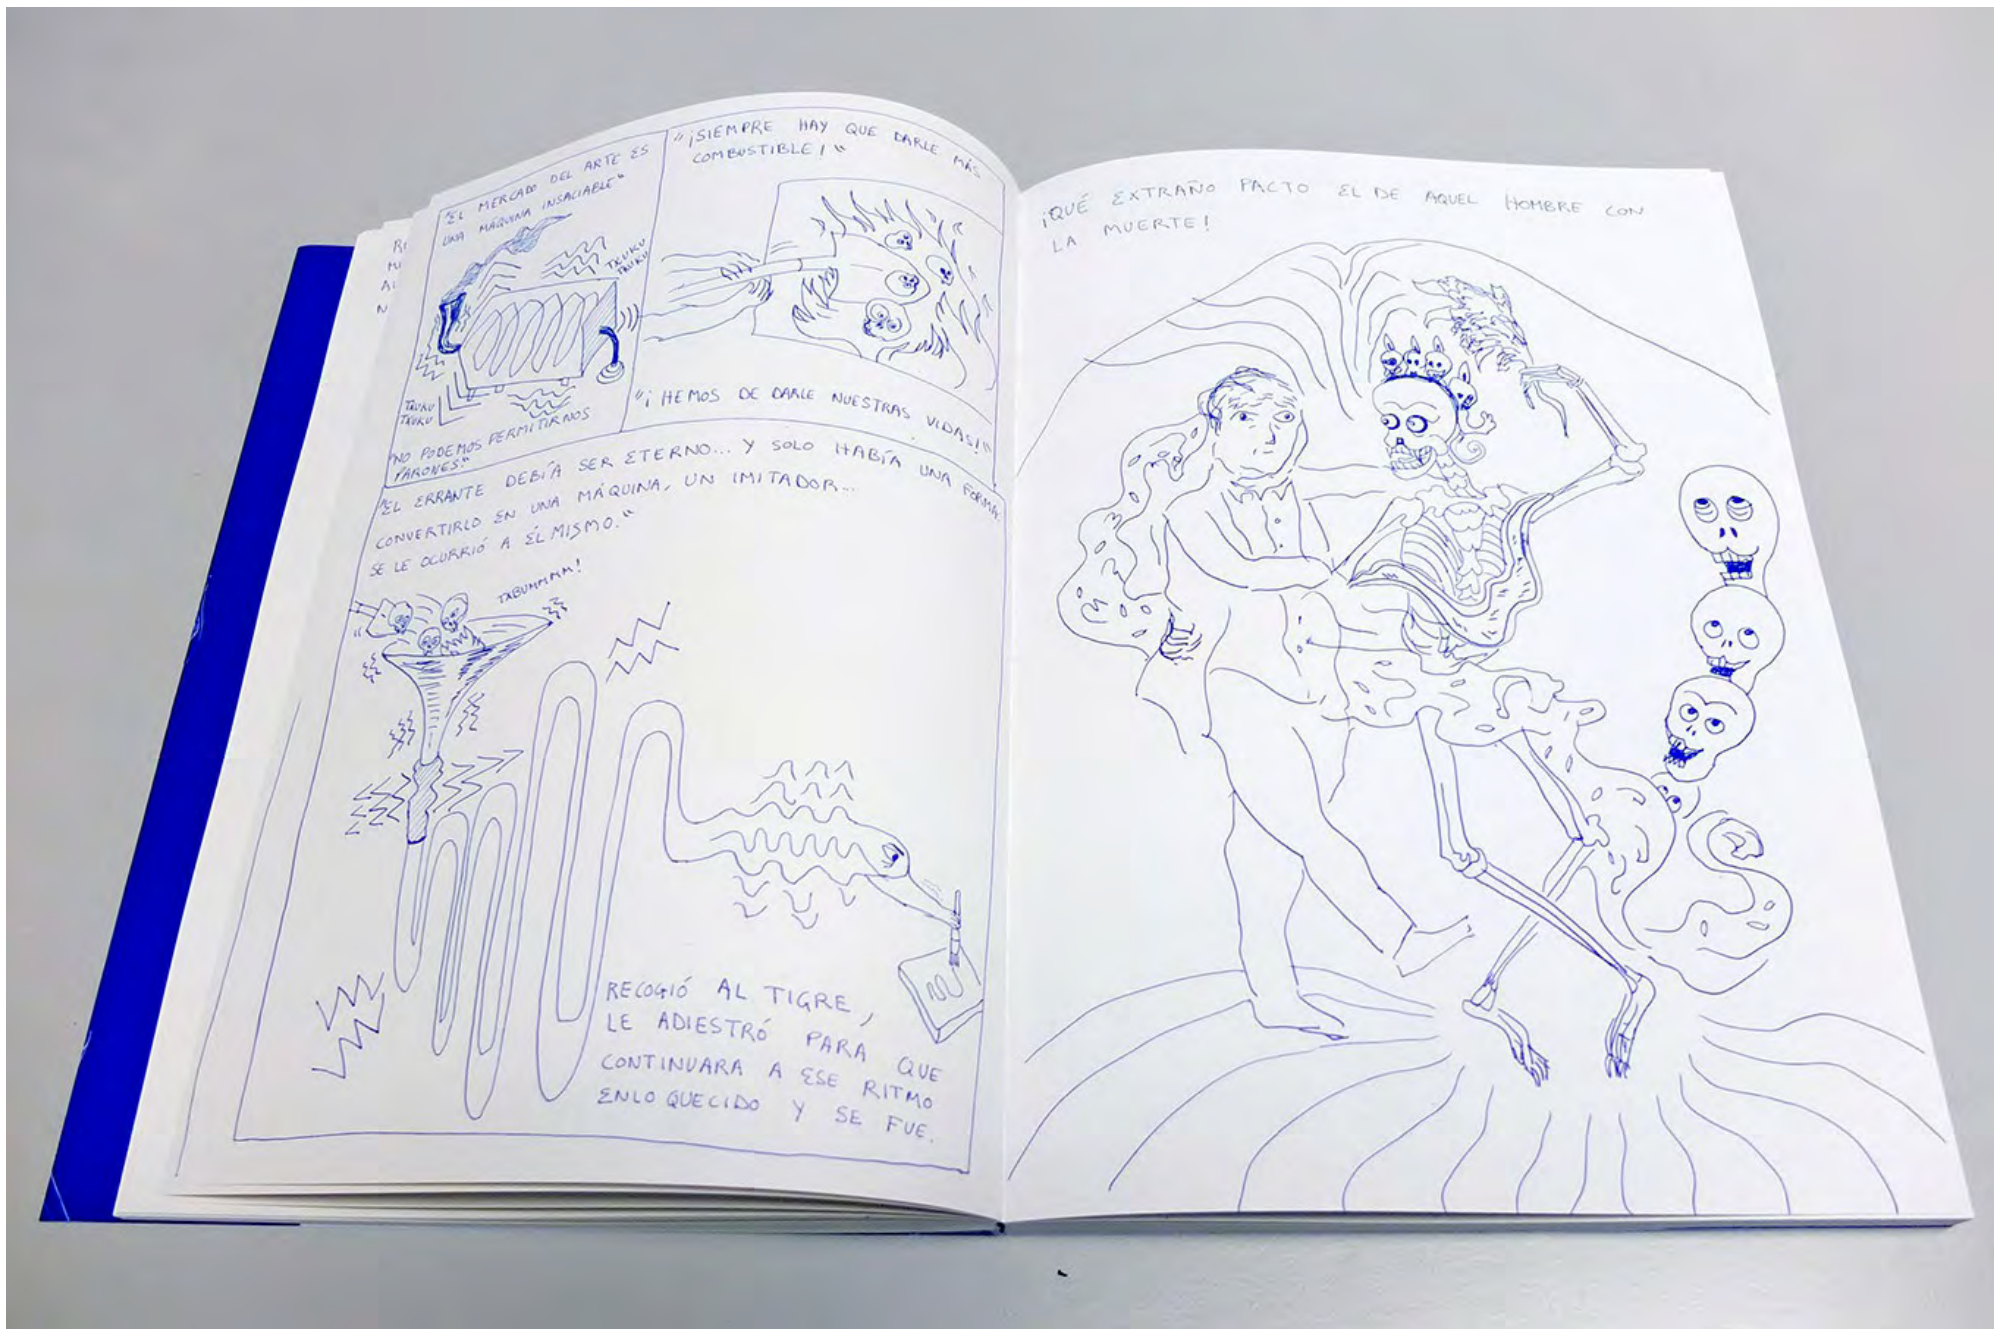 RE
MI
AL
N
"EL MERCADO DEL ARTE ES
UNA MÁQUINA INSACIABLE"
TXUKU
TXUKU
TXUKU
TXUKU
"NO PODEMOS PERMITIRNOS
PARONES."
"¡SIEMPRE HAY QUE DARLE MÁS
COMBUSTIBLE!"
"¡HEMOS DE DARLE NUESTRAS VIDAS!"
"EL ERRANTE DEBÍA SER ETERNO... Y SOLO HABÍA UNA FORMA.
CONVERTIRLO EN UNA MÁQUINA, UN IMITADOR...
SE LE OCURRIÓ A ÉL MISMO."
TXBUMMMM!
RECOGIÓ AL TIGRE,
LE ADIESTRÓ PARA QUE
CONTINUARA A ESE RITMO
ENLOQUECIDO Y SE FUE.
¡QUÉ EXTRAÑO PACTO EL DE AQUEL HOMBRE CON
LA MUERTE!